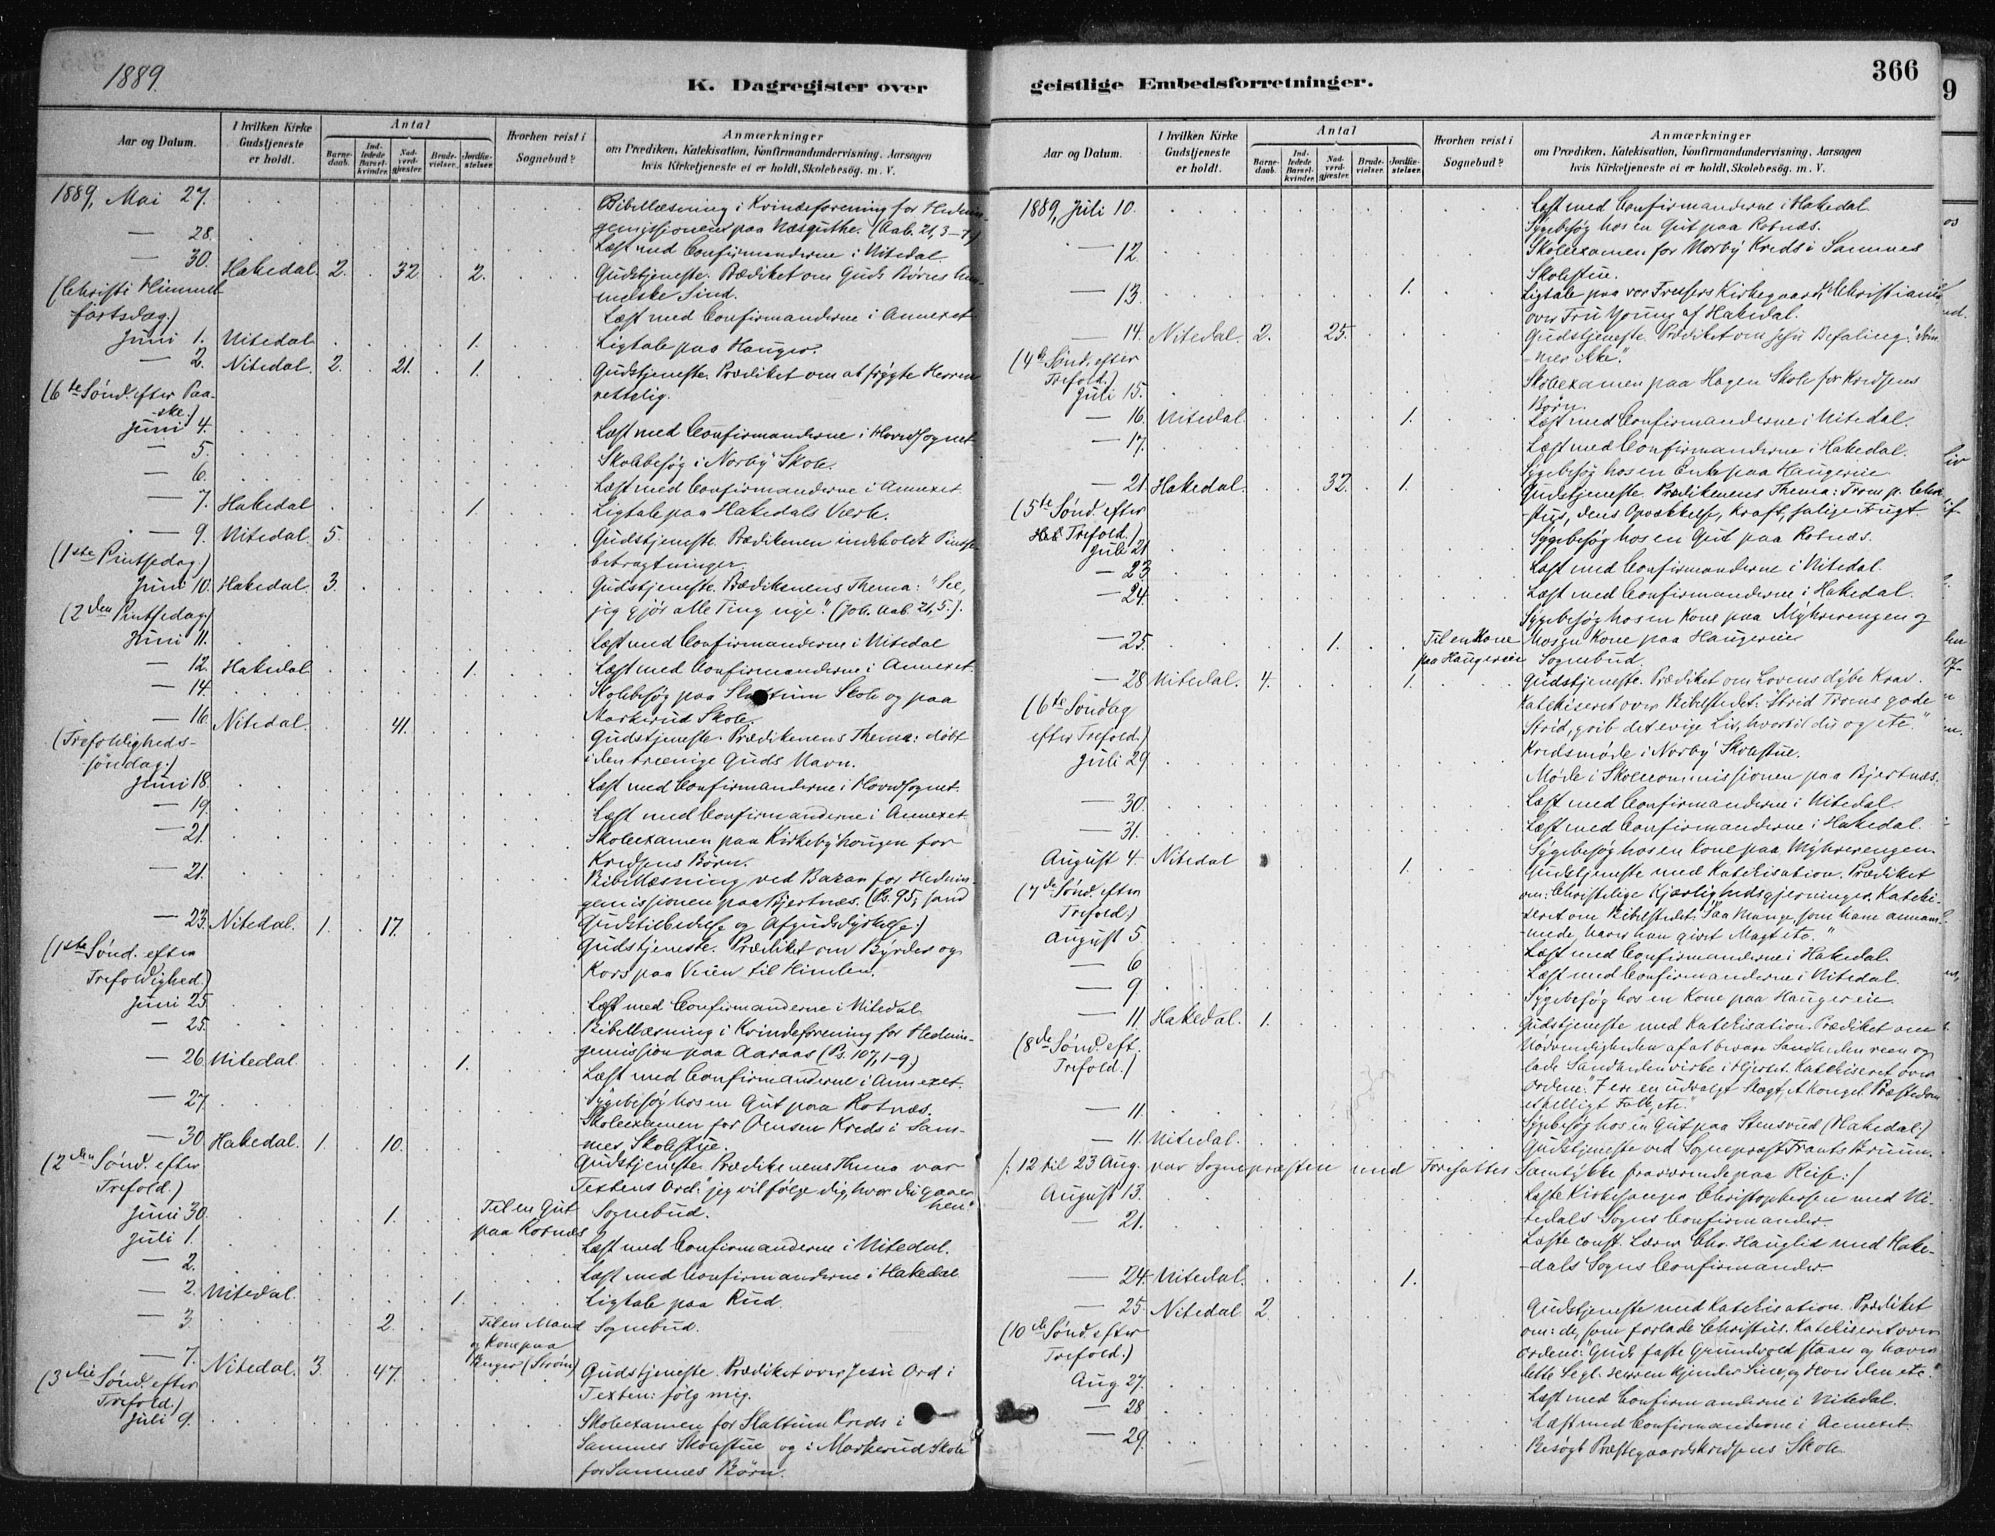 1889.
K. Dagregister over
Aar og Datum.
I hvilken Kirke Gudstjeneste er holdt.
Antal
Barnedaab.
Indledede Barselkvinder.
Nadverdgjæster.
Brudevielser.
Jordfæstelser.
Hvorhen reist i Sognebud?
Anmærkninger
om Prædiken, Katekisation, Konfirmandundervisning, Aarsagen
hvis Kirketjeneste ei er holdt, Skolebesøg. m. V.
1889, Mai 27. Bibellæsning i Kvindeforening for Hednin-
gemissionen paa Næsguthe. (Aab. 21, 3-7.)
— 28. Læst med Confirmanderne i Nitedal.
— 30. Hakedal. 2. 32. 2. Gudstjeneste. Prædiket om Guds Børns him-
(Christi Himmel- melske Sind.
fartsdag.) Læst med Confirmanderne i Annexet.
Juni 1. Nitedal 1. Ligtale paa Hauger.
— 2. Nitedal. 2. 21. 1. Gudstjeneste. Prædiket om at frygte Herren
(6te Sønd. efter Paa- rettelig.
ske.)
Juni 4. Læst med Confirmanderne i Hovedsognet
— 5. Skolebesøg i Norby Skole.
— 6. Læst med Confirmanderne i Annexet.
— 7. Hakedal 1. Ligtale paa Hakedals Værk.
— 9. Nitedal. 5. Gudstjeneste. Prædikenen indeholdt Pintse-
(1ste Pintsedag) betragtninger.
Juni 10. Hakedal. 3. Gudstjeneste. Prædikenens Thema: "See,
(2den Pintsedag.) jeg gjør alle Ting nye." (Joh. Aab. 21, 5.)
Juni 11. Læst med Confirmanderne i Nitedal
— 12. Hakedal 1. Læst med Confirmanderne i Annexet.
— 14. Skolebesøg paa Slattum Skole og paa
Markerud Skole.
— 16. Nitedal. 41. Gudstjeneste. Prædikenens Thema: døbt
(Trefoldigheds- i den treenige Guds Navn.
søndag.)
Juni 18. Læst med Confirmanderne i Hovedsognet.
— 19. Læst med Confirmanderne i Annexet.
— 21. Skoleexamen paa Kirkebyhougen for
Kredsens Børn.
— 21. Bibellæsning ved Bazar for Hednin-
gemissionen paa Bjertnæs. (Ps. 95, sand
— 23. Nitedal. 1. 17. Gudstilbedelse og Afgudsdyrkelse.)
(1ste Sønd. efter Gudstjeneste. Prædiket om Byrder og
Trefoldighed.) Kors paa Veien til Himlen.
Juni 25. Læst med Confirmanderne i Nitedal.
— 25. Bibellæsning i Kvindeforening for Hednin-
— 26. Nitedal. 1. gemission paa Aaraas (Ps. 107, 1-9)
Læst med Confirmanderne i Annexet.
— 27 Sygebesøg hos en Gut paa Rotnæs.
— 30. Hakedal. 1. 10. Skoleexamen for Kreds i Sam-
(2den Sønd. efter mes Skolestue.
Trefold.) Gudstjeneste. Prædikenens Thema var
Textens Ord: "jeg vil følge dig, hvor du gaaer
hen."
Juni 30. 1. Til en Gut paa Rotnæs Sognebud.
Juli 1. Læst med Confirmanderne i Nitedal.
— 2. Læst med Confirmanderne i Hakedal
— 2. Nitedal. 1. Ligtale paa Rud.
— 3. 2. Til en Mand og Kone paa (Strøm) Sognebud.
— 7. Nitedal. 3. 47. Gudstjeneste. Prædiket over Jesu Ord i
(3die Sønd. efter Texten: følg mig.
Trefold.)
Juli 9. Skoleexamen for Slattum Kreds i
Sammes Skolestue og i Markerud Skole
for Sammes Børn.
geistlige Embedsforretninger.
366
Aar og Datum.
I hvilken Kirke Gudstjeneste er holdt.
Antal
Barnedaab.
Indledede Barselkvinder.
Nadverdgjæster.
Brudevielser.
Jordfæstelser.
Hvorhen reist i Sognebud?
Anmærkninger
om Prædiken, Katekisation, Konfirmandundervisning, Aarsagen
hvis Kirketjeneste ei er holdt, Skolebesøg. m. V.
1889, Juli 10. Læst med Confirmanderne i Hakedal.
Sygebesøg hos en Gut paa Rotnæs.
— 12. Skoleexamen for Norby Kreds i Sammes
Skolestue.
— 13. 1. Ligtale paa vor Frelsers Kirkegaard, Christiania
over Fru Young af Hakedal.
— 14. Nitedal 2. 25. Gudstjeneste. Prædiket om Jesu Befaling: "døm-
(4de Sønd. efter mer ikke."
Trefold.)
Juli 15. Skoleexamen paa Hagen Skole for Kredsens
Børn.
— 16. Nitedal 1. Læst med Confirmanderne i Nitedal.
— 17. Læst med Confirmanderne i Hakedal.
Sygebesøg hos en Enke paa Haugereie
— 21. Hakedal. 32. 1. Gudstjeneste. Prædikenens Thema: Troen p. Chri-
(5te Sønd. efter stus, dens Opvækkelse, Kraft, salige Frugt.
Trefold.)
Juli 21 Sygebesøg hos en Gut paa Rotnæs.
— 23 Læst med Confirmanderne i Nitedal.
— 24. Læst med Confirmanderne i Hakedal.
Sygebesøg hos en Kone paa Myhrerengen og
— 25. 1. Til en Kone paa Haugereie hos en Kone paa Haugereie
Sognebud.
— 28 Nitedal. 4. 1. Gudstjeneste. Prædiket om Lovens dybe Krav.
(6te Søndag Katekiseret over Bibelstedet: "Strid Troens gode
efter Trefold.) Strid, grib det evige Liv, hvortil du og etc."
Juli 29 Kredsmøde i Norby Skolestue.
Møde i Skolecommissionen paa Bjertnæs.
— 30. Læst med Confirmanderne i Nitedal.
— 31. Læst med Confirmanderne i Hakedal.
Sygebesøg hos en Kone paa Myhrerengen.
August 4. Nitedal 1. Gudstjeneste med Katekisation. Prædiket
(7de Sønd. efter om: Christelige Kjærlighedsgjerninger. Kateki-
Trefold.) seret om Bibelstedet: "Saa Mange som ham annam-
mede, haver han givet Magt etc."
August 5 Læst med Confirmanderne i Hakedal.
— 6 Læst med Confirmanderne i Nitedal.
— 9 Sygebesøg hos en Kone paa Haugereie.
— 11 Hakedal. 1. Gudstjeneste med Katekisation. Prædiket om
(8de Sønd. eft. Nødvendigheden af at bevare Sandheden reen og
Trefold.) lade Sandheden virke i Hjertet. Katekiseret over
Ordene: "I ere en udvalgt Slægt, et kongel. Præstedom
et helligt Folk, etc."
— 11. Sygebesøg hos en Gut paa Stensrud (Hakedal.)
— 11. Nitedal. Gudstjeneste ved Sognepræst Frants Bruun.
(: 12 til 23 Aug. var Sognepræsten med Foresattes Samtykke fraværende paa Reise:)
August 13. Læste Kirkesanger Christophersen med Ni-
tedals Sogns Confirmander.
— 21. Læste const. Lærer Chr. Hauglid med Hake-
dals Sogns Confirmander.
— 24. Nitedal. 1.
— 25. Nitedal 2 Gudstjeneste med Katekisation. Prædiket
(10de Sønd. efter om: de, som forlade Christus. Katekiseret over
Trefold.) Ordene: "Guds faste Grundvold staaer og haver
dette Segl: Herren kjender Sine, og Hver den etc."
Aug 27. Læst med Confirmanderne i Nitedal.
— 28 Læst med Confirmanderne i Annexet.
— 29. Besøgt Præstegaardskredsens Skole
9